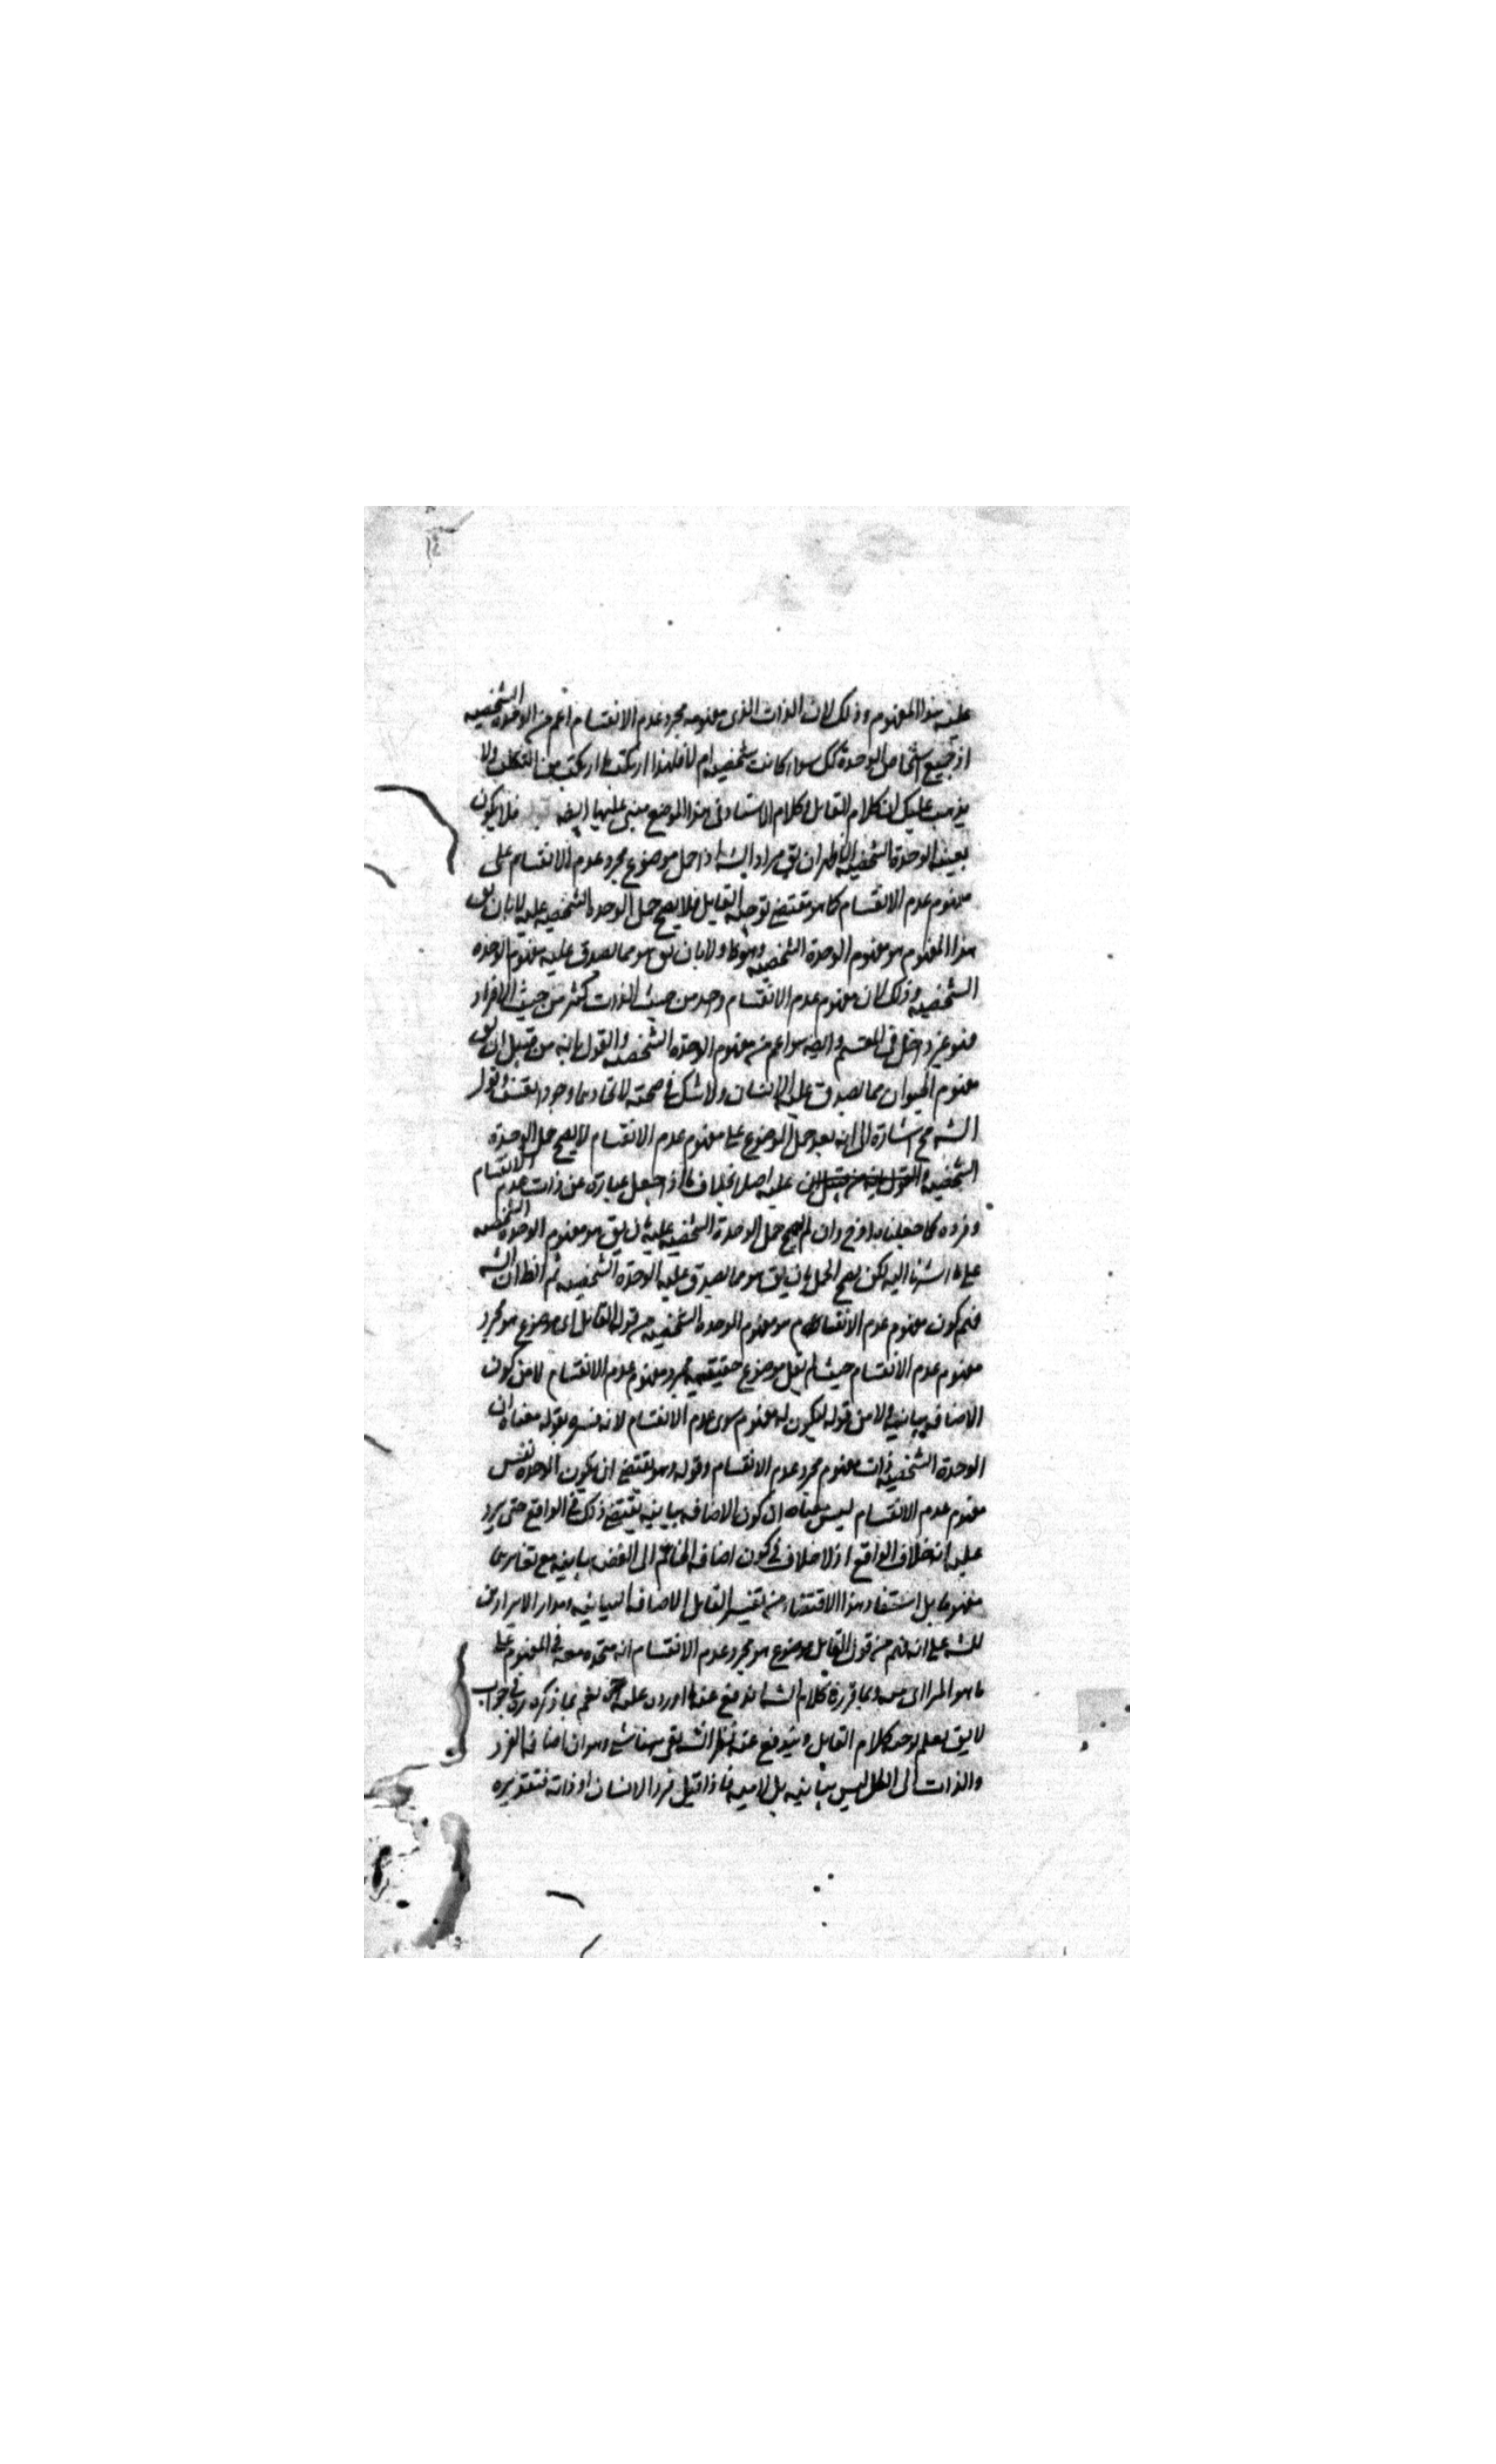 عليه هذا المفهوم وذلك لان الذات الذى مفهومه مجرد عدم الانقسام اعم من الوحدة الشخصيه
اذ جميع اشخاص الوحدة كك سواء كانت شخصيه ام لا فلهذا ارتكب ما ارتكب من التكلف ولا
يذهب عليك ان كلام القابل وكلام الاستاد فى هذا الموضع مبنى عليها ايضه فلا يكون
بعينه الوحدة الشخصيه الظاهر ان يق مراد الشه اذا حمل موضوع مجرد عدم الانقسام على
مفهوم عدم الانقسام كما هو مقتضى توجيه القايل فلا يصح حمل الوحدة الشخصيه عليه لا بان يق
هذا المفهوم هو مفهوم الوحدة الشخصيه وهو كا ولا بان يق هو مما يصدق عليه مفهوم الوحدة
الشخصيه وذلك لان مفهوم عدم الانقسام واحد من حيث الذات كثير من حيث الافراد
فهو غير داخل فى المقسم وايضه هو اعم من مفهوم الوحدة الشخصيه والقول بانه من قبيل ان يق
مفهوم الحيوان مما يصدق عليه الانسان ولا شك فى صحته لاتحادهما وجودا تعسف وقول
الشه مح اشارة الى انه بعد حمل الموضوع على مفهوم عدم الانقسام لا يصح حمل الوحدة
الشخصيه عليه اصلا بخلاف ما اذا جعل عبارة عن ذات عدم الانقسام
وفرده كما جعلناه اذ ح وان لم يصح حمل الوحدة الشخصيه عليه بان يق هو مفهوم الوحدة الشخصيه
على ما اشرنا اليه لكن يصح الحمل بان يق هو مما يصدق عليه الوحدة الشخصيه ثم الظ ان الشه
فهم كون مفهوم عدم الانقسام هو مفهوم الوحدة الشخصيه من قول القائل اى موضوع هو مجرد
مفهوم عدم الانقسام حيث لم يقل موضوع حقيقته مجرد مفهوم عدم الانقسام لا من كون
الاضافه بيانيه ولا من قوله لا يكون له مفهوم سوى عدم الانقسام لانه فسره بقوله معناه ان
الوحدة الشخصيه ذات مفهوم مجرد عدم الانقسام وقوله وهو يقتضى ان يكون الوحدة نفس
مفهوم عدم الانقسام ليس معناه ان كون الاضافه بيانيه يقتضى ذلك فى الواقع حتى يرد
عليه انه خلاف الواقع اذ لا خلاف فى كون اضافه الخاتم الى الفضه بيانيه مع تغايرهما
مفهوما بل استفاد هذا الاقتضاء من تفسير القايل الاضافه البيانيه ومدار الايراد من
الشه على انه فهم من قول القايل موضوع هو مجرد عدم الانقسام انه متحده معه فى المفهوم على
ما هو المرائى منه وبما قررنا كلام الشه اندفع عنه ما اورده عليه نعم بما ذكره فى جواب
لا يق يعلم توجيه كلام القايل ويندفع عنه نظر الشه بقى ههنا شئ وهو ان اضافه الفرد
والذات الى الكل ليس بيانيه بل لاميه فاذا قيل فرد الانسان او ذاته فتقديره